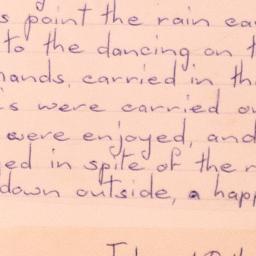 s point the rain ca
to the dancing on t
hands, carried in th
s were carried o
were enjoyed, and
ed in spite of the r
down outside, a happ